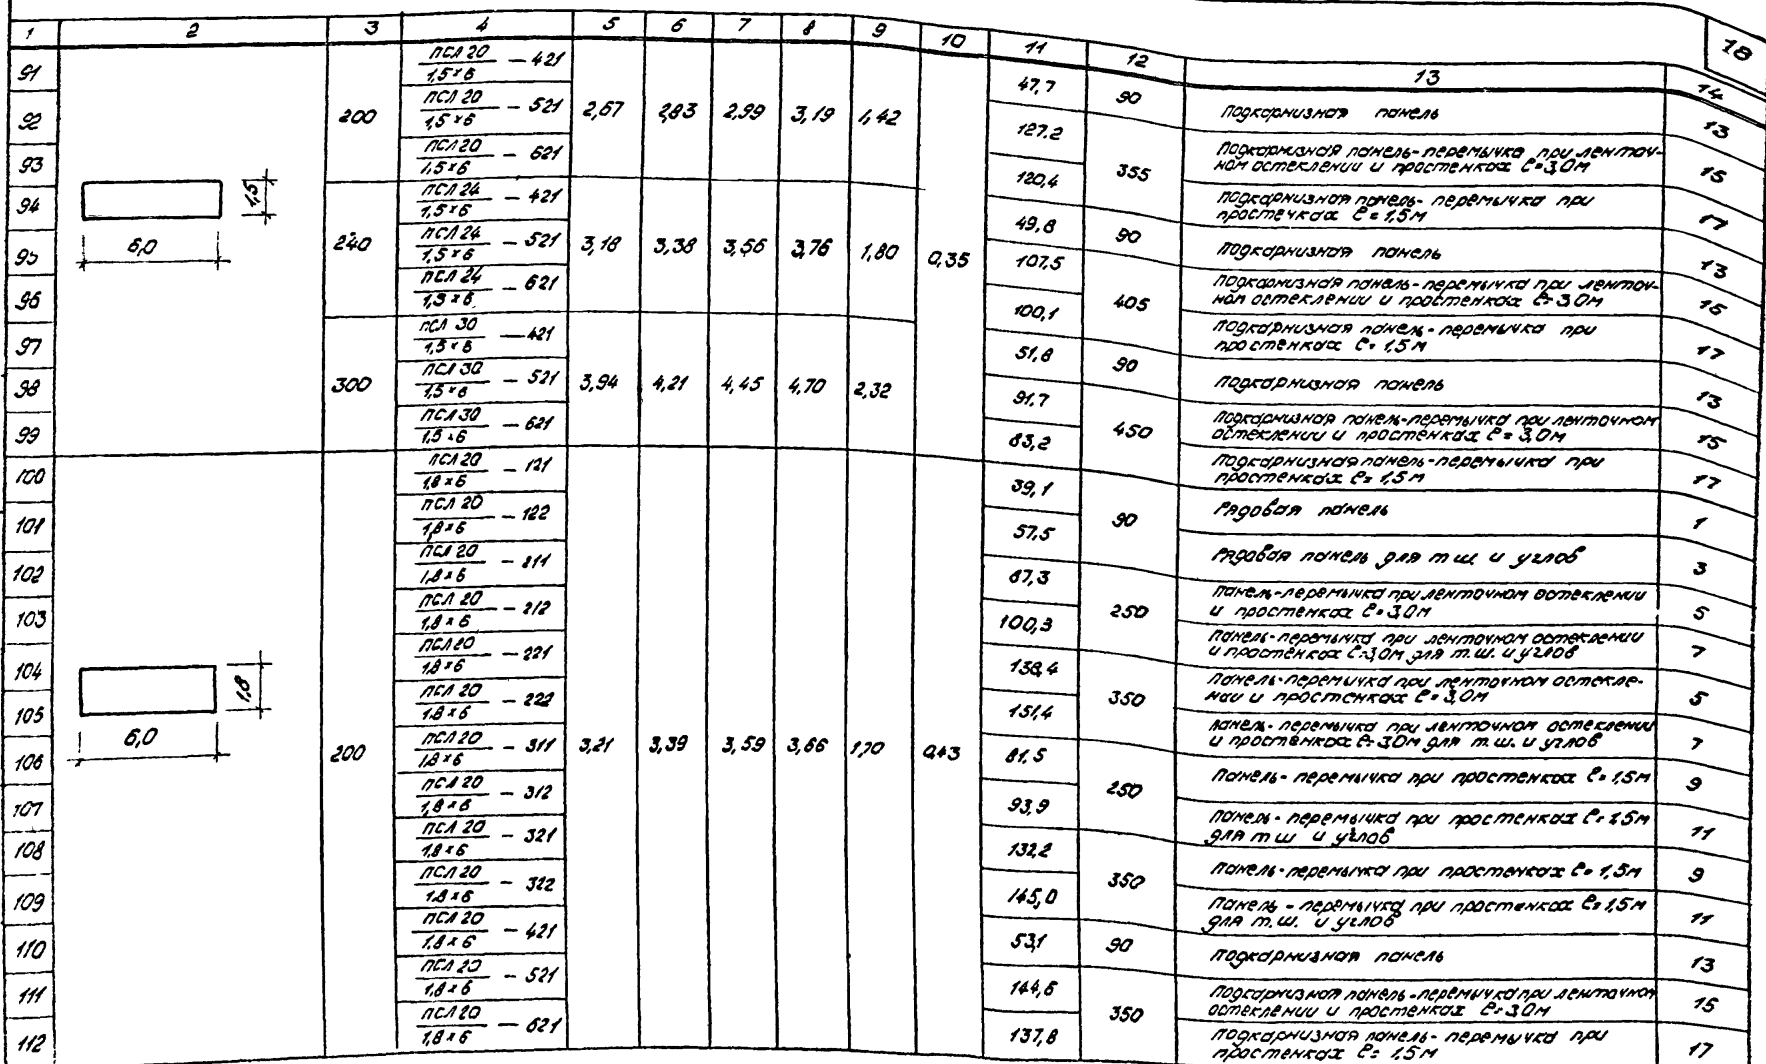 18
1 2 3 4 5 6 7 8 9 10 11 12 13 14
91 ПСЛ 20 / 1,5×6 – 421 47,7 90 Подкарнизная панель 13
92 200 ПСЛ 20 / 1,5×6 – 521 2,67 2,83 2,99 3,19 1,42 127.2 355 Подкарнизная панель-перемычка при ленточ-
ном остеклении и простенках ℓ=3,0м 15
93 ПСЛ 20 / 1,5×6 – 621 120,4 Подкарнизная панель-перемычка при
простенках ℓ=1,5м 17
94 1,5 ПСЛ 24 / 1,5×6 – 421 49,8 90 Подкарнизная панель 13
95 6,0 240 ПСЛ 24 / 1,5×6 – 521 3,18 3,38 3,56 3,76 1,80 0,35 107,5 405 Подкарнизная панель-перемычка при ленточ-
ном остеклении и простенках ℓ=3,0м 15
96 ПСЛ 24 / 1,5×6 – 621 100,1 Подкарнизная панель-перемычка при
простенках ℓ=1,5м 17
97 ПСЛ 30 / 1,5×6 – 421 51,8 90 Подкарнизная панель 13
98 300 ПСЛ 30 / 1,5×6 – 521 3,94 4,21 4,45 4,70 2,32 91,7 450 Подкарнизная панель-перемычка при ленточном
остеклении и простенках ℓ=3,0м 15
99 ПСЛ 30 / 1,5×6 – 621 83,2 Подкарнизная панель-перемычка при
простенках ℓ=1,5м 17
100 ПСЛ 20 / 1,8×6 – 121 39,1 90 Рядовая панель 1
101 ПСЛ 20 / 1,8×6 – 122 57,5 Рядовая панель для т.ш. и углов 3
102 ПСЛ 20 / 1,8×6 – 211 87,3 250 Панель-перемычка при ленточном остеклении
и простенках ℓ=3,0м 5
103 ПСЛ 20 / 1,8×6 – 212 100,3 Панель-перемычка при ленточном остеклении
и простенках ℓ=3,0м для т.ш. и углов 7
104 1,8 ПСЛ 20 / 1,8×6 – 221 138,4 350 Панель-перемычка при ленточном остекле-
нии и простенках ℓ=3,0м 5
105 ПСЛ 20 / 1,8×6 – 222 151,4 Панель-перемычка при ленточном остеклении
и простенках ℓ=3,0м для т.ш. и углов 7
106 6,0 200 ПСЛ 20 / 1,8×6 – 311 3,21 3,39 3,59 3,66 1,70 0,43 81,5 250 Панель-перемычка при простенках ℓ=1,5м 9
107 ПСЛ 20 / 1,8×6 – 312 93,9 Панель-перемычка при простенках ℓ=1,5м
для т.ш и углов 11
108 ПСЛ 20 / 1,8×6 – 321 132,2 350 Панель-перемычка при простенках ℓ=1,5м 9
109 ПСЛ 20 / 1,8×6 – 322 145,0 Панель-перемычка при простенках ℓ=1,5м
для т.ш. и углов 11
110 ПСЛ 20 / 1,8×6 – 421 53,1 90 Подкарнизная панель 13
111 ПСЛ 20 / 1,8×6 – 521 144,6 350 Подкарнизная панель-перемычка при ленточном
остеклении и простенках ℓ=3,0м 15
112 ПСЛ 20 / 1,8×6 – 621 137,8 Подкарнизная панель-перемычка при
простенках ℓ=1,5м 17